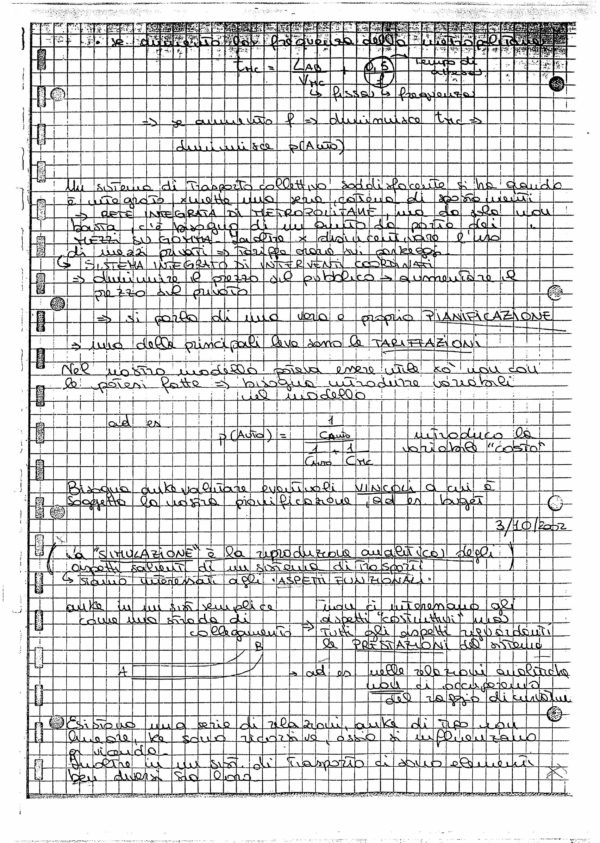 • se aumento la frequenza della metropolitana
tMC = LAB / VMC + 0,5 / f → tempo di attesa
↳ fissa ↳ frequenza
⇒ se aumento f ⇒ diminuisce tMC ⇒
diminuisce p(Auto)
Un sistema di trasporto collettivo soddisfacente si ha quando
è integrato, xmette una seria catena di spostamenti
⇒ RETE INTEGRATA DI METROPOLITANE, ma da sola non
basta, c'è bisogno di un aiuto da parte dei
MEZZI SU GOMMA. Inoltre x disincentivare l'uso
di mezzi privati ⇒ tariffe orarie sui parkegg.
↳ SISTEMA INTEGRATO DI INTERVENTI COORDINATI
⇒ diminuire il prezzo del pubblico ⇒ aumentare il
prezzo del privato
⇒ si parla di una vera e propria PIANIFICAZIONE
⇒ una delle principali leve sono le TARIFFAZIONI
Nel nostro modello poteva essere utile ciò non con
le ipotesi fatte ⇒ bisogna introdurre variabili
nel modello
ad es
p(Auto) = 1/CAuto / (1/CAuto + 1/CMC) introduco la
variabile "costo"
Bisogna anke valutare eventuali VINCOLI a cui è
soggetta la nostra pianificazione, ad es. buget
3/10/2002
(La "SIMULAZIONE" è la riproduzione analitica degli
aspetti salienti di un sistema di trasporti)
↳ siamo interessati agli "ASPETTI FUNZIONALI".
anke in un sist semplice
come una strada di
collegamento
A B
⇒ non ci interessano gli
aspetti "costruttivi" ma
tutti gli aspetti riguardanti
le PRESTAZIONI del sistema
→ ad es nelle relazioni analitiche
non ci occuperemo
del raggio di curvatura
Esistono una serie di relazioni, anke di tipo non
lineare, ke sono ricorsive, ossia si influenzano
a vicenda.
Inoltre in un sist. di trasporto ci sono elementi
ben diversi fra loro.